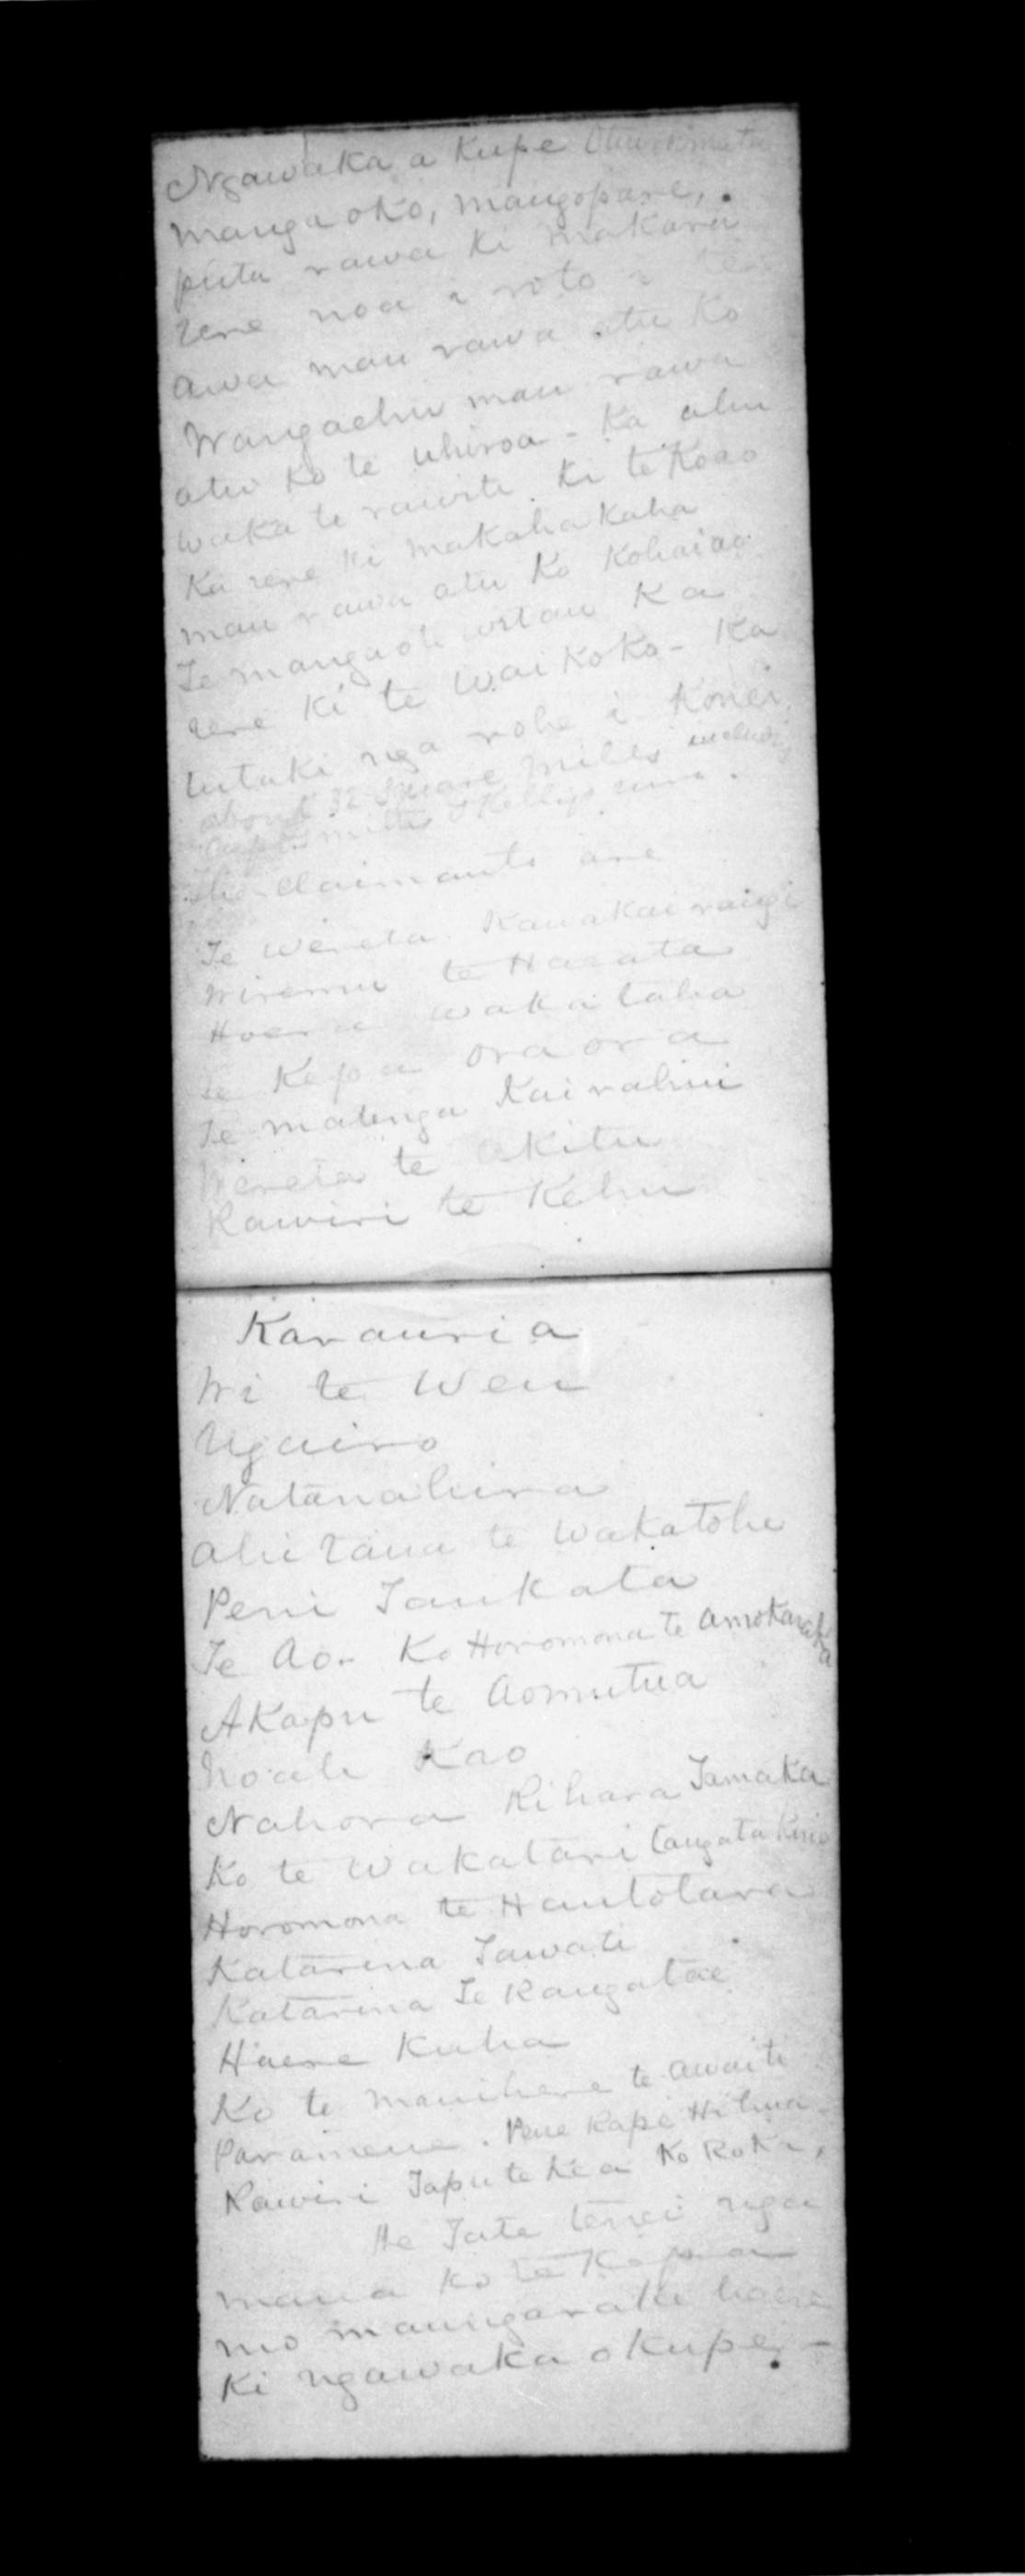 Ngawaka a Kupe
mangaoko, mangopare,
puta rawa ki makara
rere noa i roto i
awa mau rawa atu Ko
Wangaehu mau rawa
atu Ko te uhiroa - Ka ahu
waka te rawiti. Ki te Koao
Ka rere ki makahakaha
mau rawa atu Ko Kohaiao
Te mangaote Ka
rere Ki te Wai KoKo - Ka
tutaki nga rohe i Konei
about 32 Square Miles including
& Kellys run.
the Claimants are
Te Wereta. Kawakairangi
Wiremu te Haeata
wakataha
te Kepa oraora
Te matenga Kairahui
Wereta te akitu
Rawiri te Kehu
Karauria
Wi te Weu
Ngairo
Natanahira
te Wakatohe
Peni Taukata
Te Ao. Ko Horomona te
Akapu te Aomutua
Noah Kao
Nahora Rihara Tamaka
Ko te Wakatari
Horomona te Hautotara
Katarina Tawati
Katarina Te Rangatae
Haere Kuha
Ko te manihera te awaiti
Paramena. Pene Kape
Rawiri Ko Roka,
He Tate tenei nga
mana Ko te Kepa
mo maungaraki haere
Ki ngawaka o Kupe, -